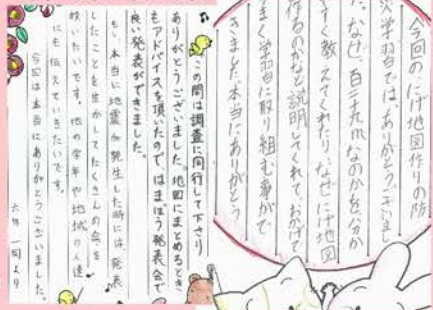 今回のにげ地図作りの防
災学習では、ありがとうございまし
た。なぜ、百二十九mなのかを分か
りやすく教えてくれたり、なぜにげ地図
を作るのかなど説明してくれて、おかげで
うまく学習に取り組む事がで
きました。本当にありがとう
この間は調査に同行して下さり
ありがとうございました。地図にまとめるとき
もアドバイスを頂いたので、はまぼう発表会で
良い発表ができました。
もし、本当に地震が発生した時には、発表
したことを生かしてたくさんの命を
救いたいです。他の学年や地域の人達
にも伝えていきたいです。
今回は本当にありがとうございました。
六年 一同より